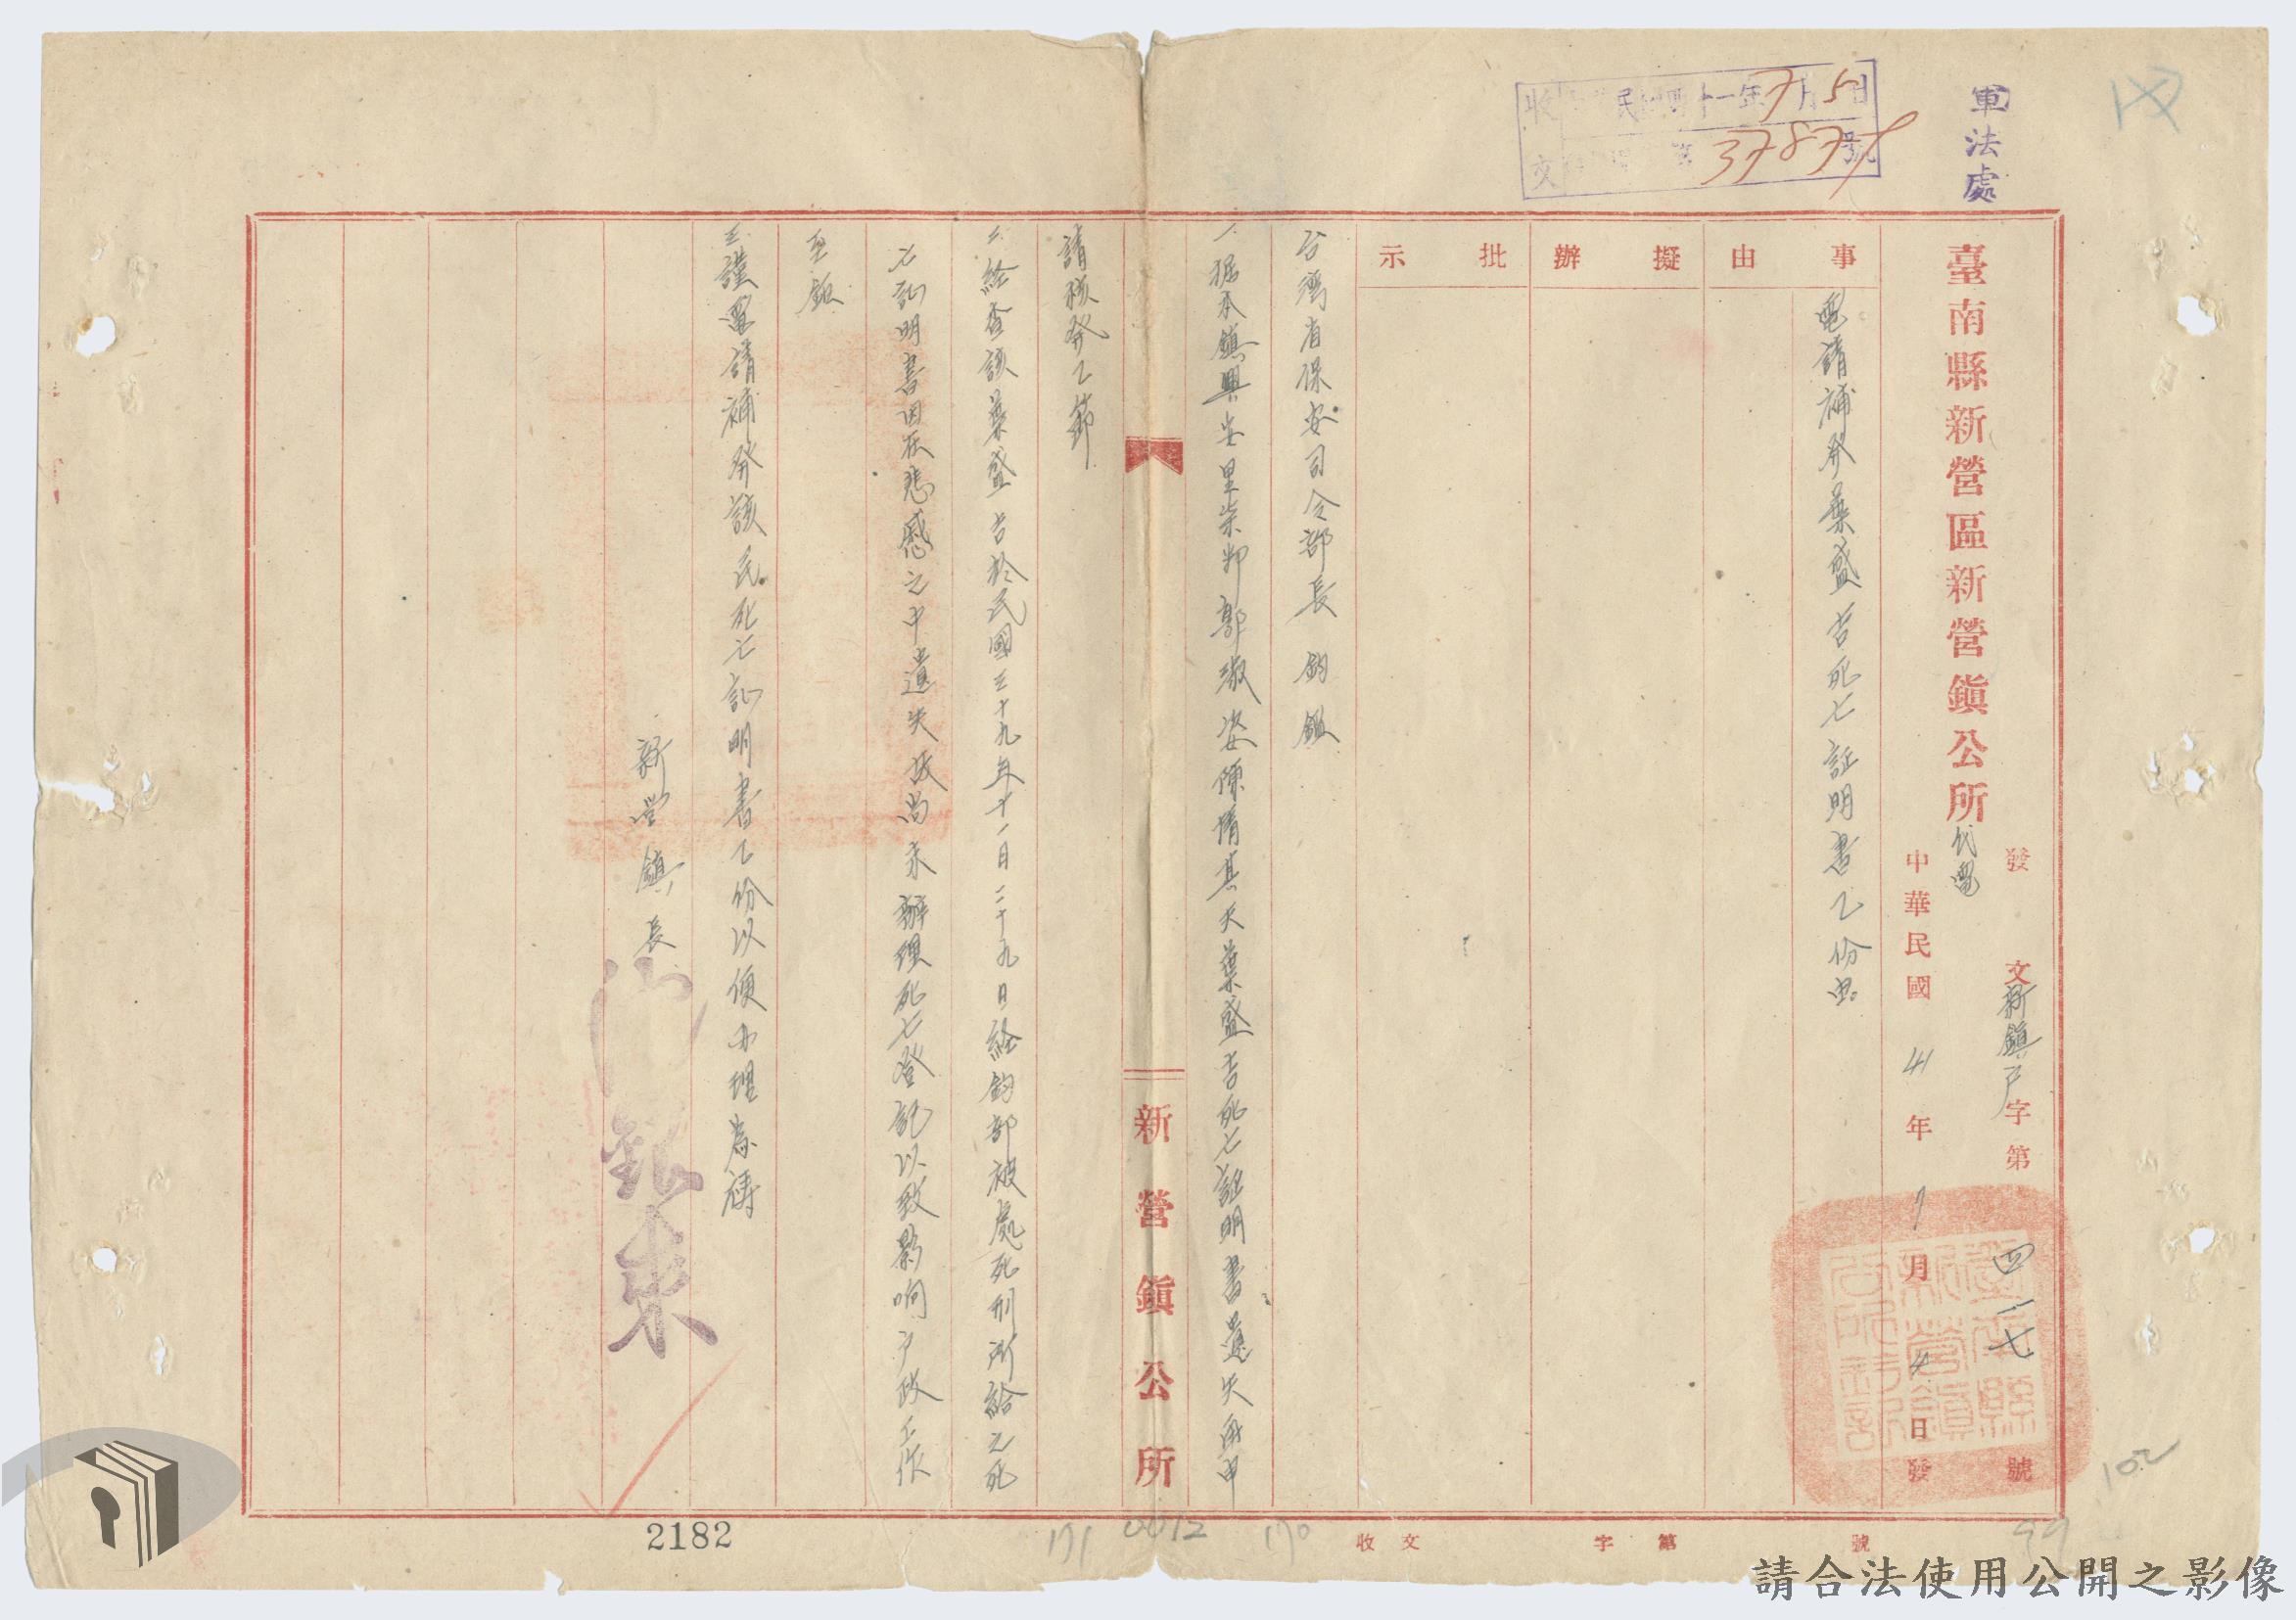 軍法處
收文 民國四十一年7月5日
第37877號
臺南縣新營區新營鎮公所代電
發文新鎮戶字第四一七號
中華民國41年7月4日發
事由
電請補發葉盛吉死亡証明書乙份由
擬辦
批示
台灣省保安司令部長 鈞鑑
一、据本鎮興安里柴邨郭淑姿陳情其夫葉盛吉死亡証明書遺失再申
請核發乙節
二、經查該葉盛吉於民國三十九年十一月二十九日經鈞部被處死刑所給之死
亡証明書因在悲慼之中遺失故尚未辦理死亡登記以致影响户政工作
至鉅
三、謹電請補發該民死亡証明書乙份以便办理為禱
新營鎮長
銀東
新營鎮公所
收文 字第 號
2182
0012
171
170
99
102
請合法使用公開之影像